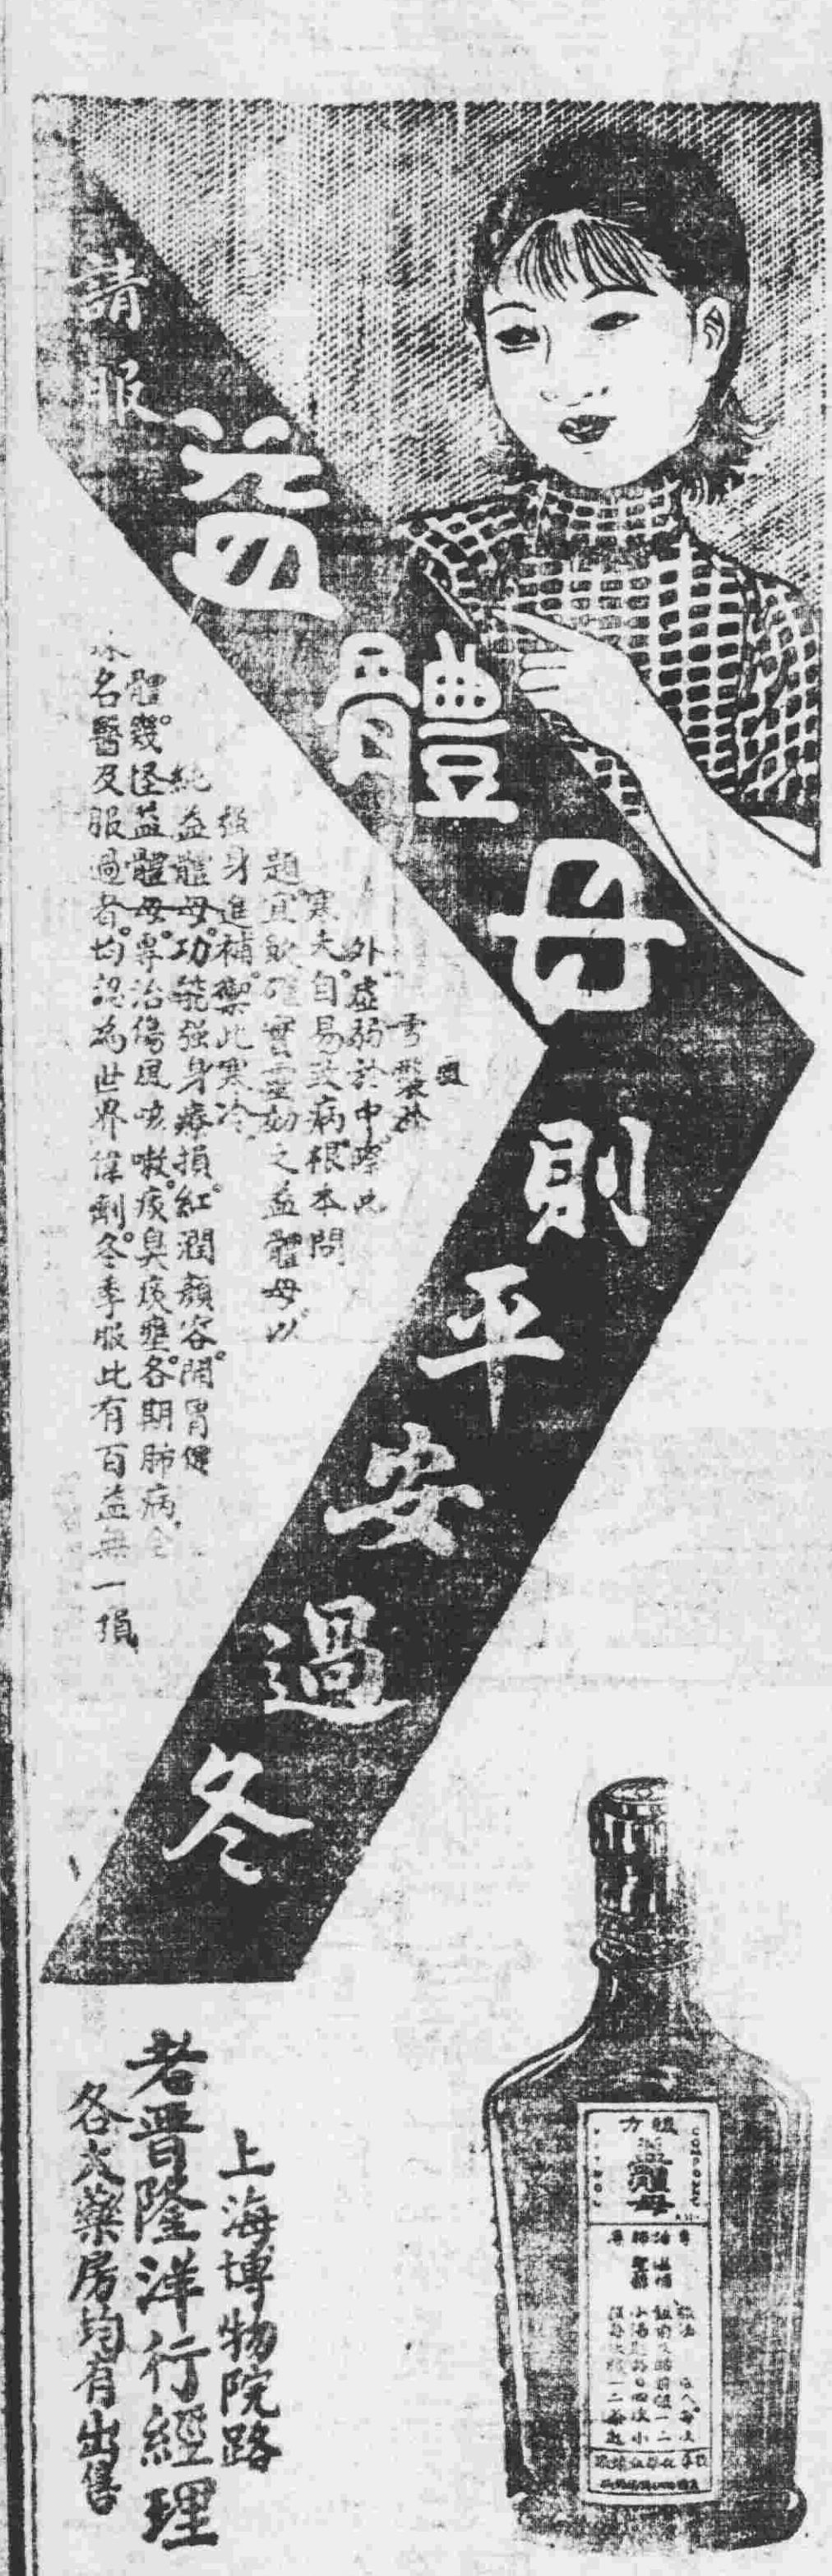 請服
益體母
則平安過冬
風
雪襲於
外。虛弱於中。際此
寒天。自易致病。根本問
題。宜飲確實靈効之益體母。以
強身進補。禦此寒冷。
純益體母。功能強身療損。紅潤顏容。開胃健
體。幾怪益體母。專治傷風咳嗽。痰臭痰壅。各期肺病。全
名醫及服過者。均認為世界偉劑。冬季服此有百益無一損
上海博物院路
老晋隆洋行經理
各大藥房均有出售
益體母